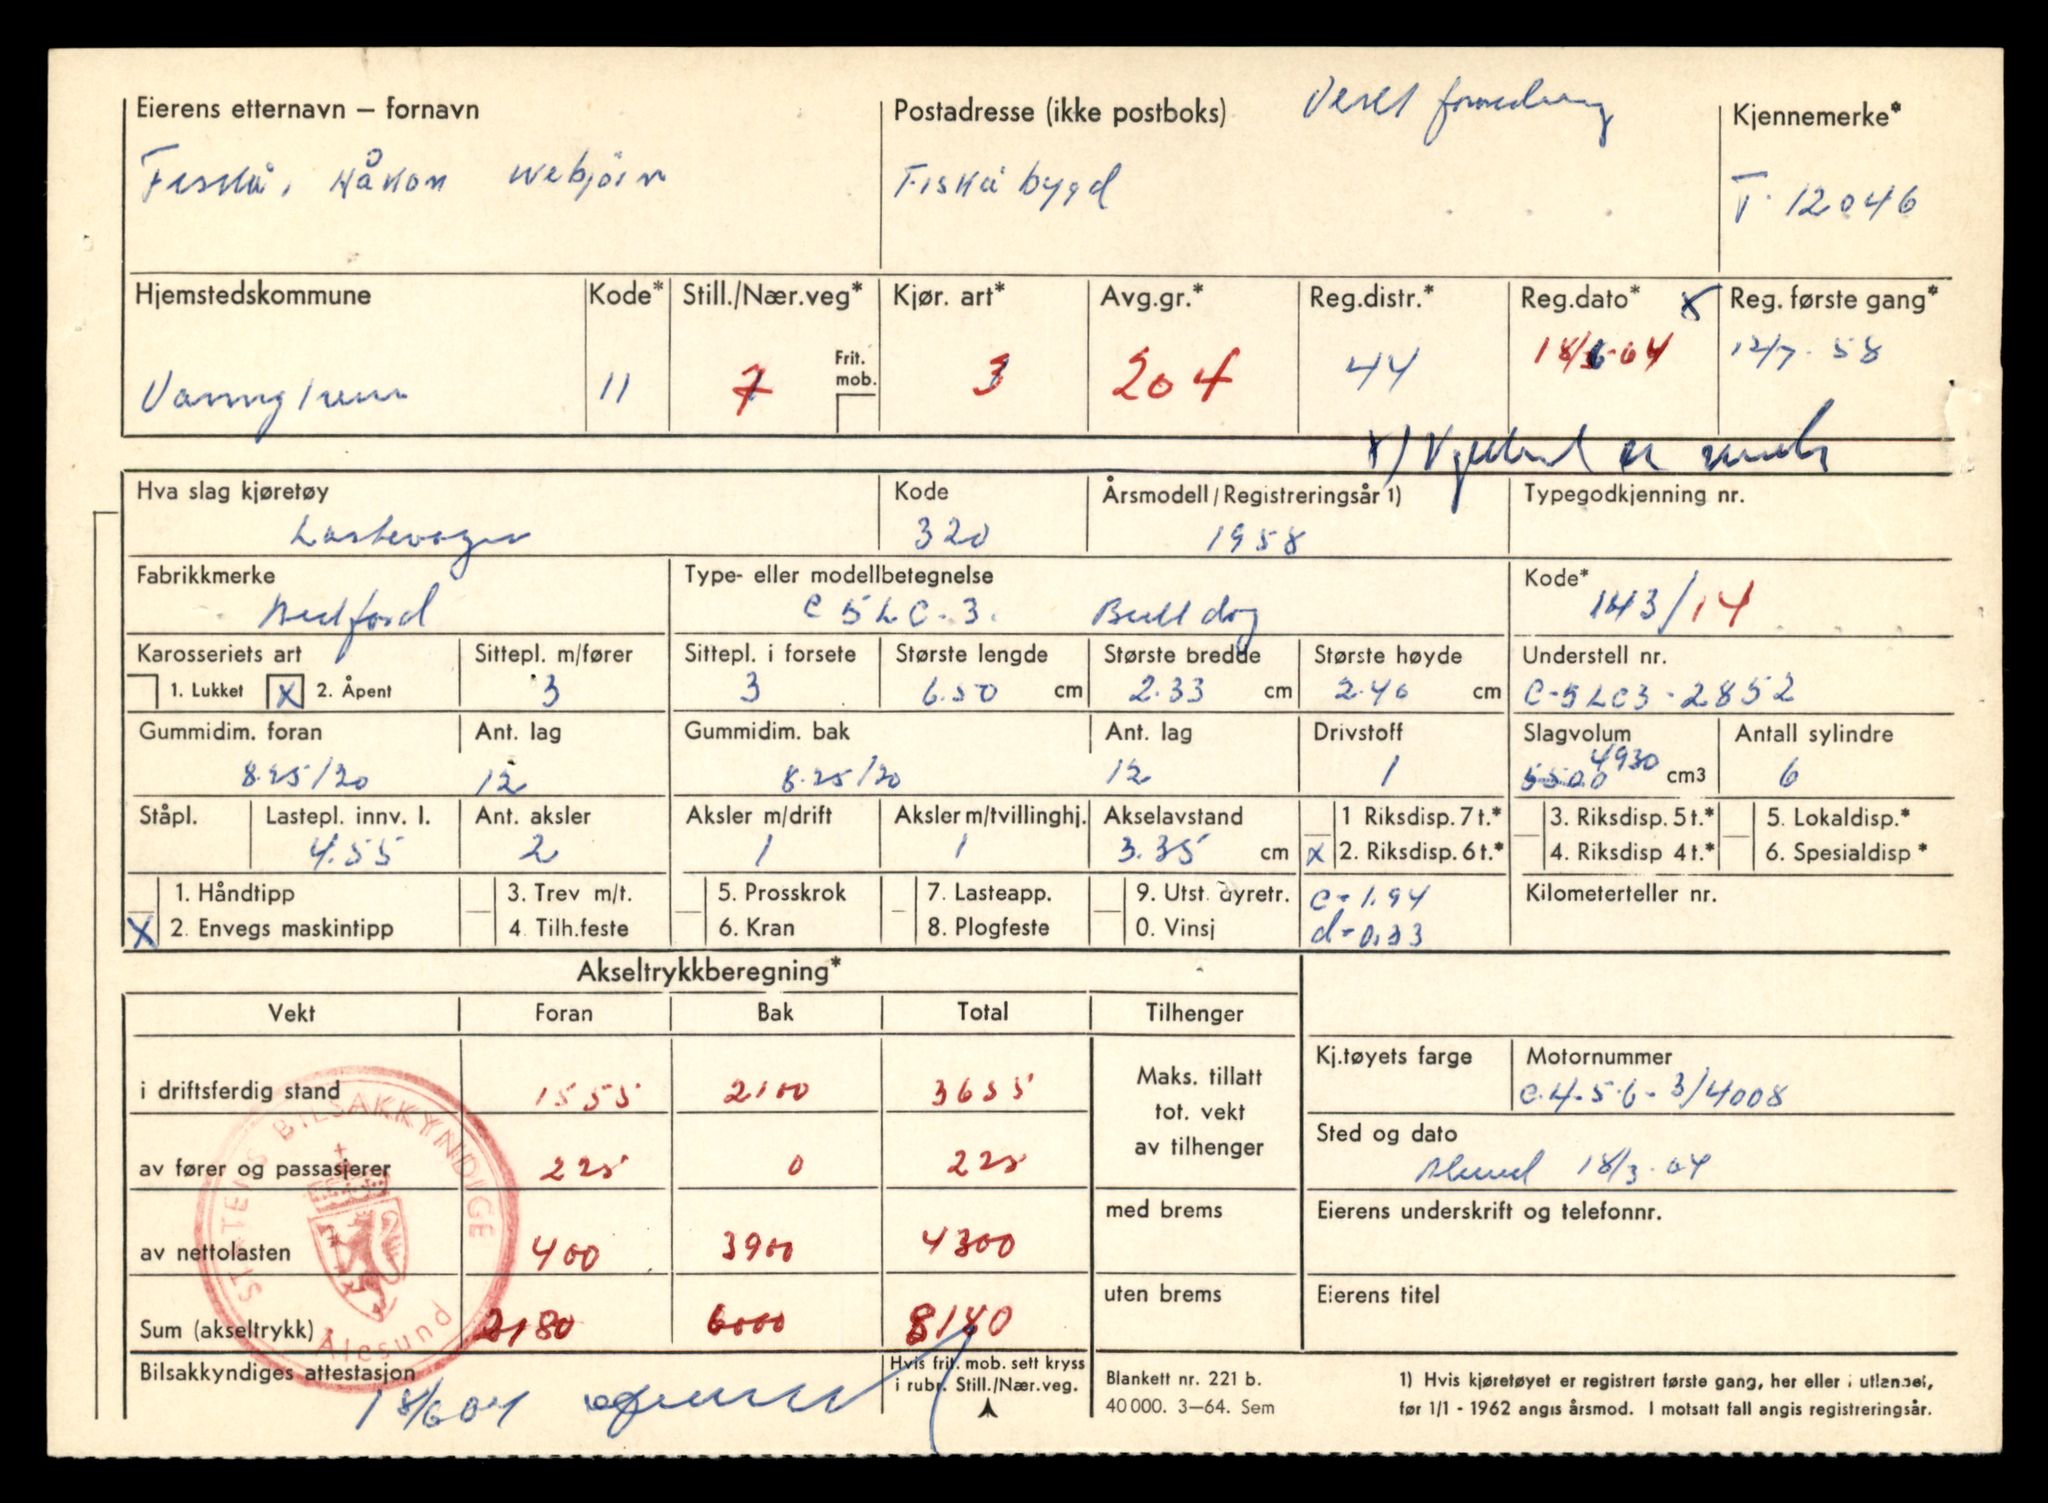 Eierens etternavn – fornavn
Postadresse (ikke postboks)
Kjennemerke*
Fiskå, Håkon
Fiskåbygd
T-12046
Hjemstedskommune
Kode*
Still./Nær.veg*
Kjør. art*
Avg.gr.*
Reg.distr.*
Reg.dato* x
Reg. første gang*
Frit. mob.
11
7
3
204
44
12/7-58
Hva slag kjøretøy
Kode
Årsmodell/Registreringsår 1)
Typegodkjenning nr.
Lastevogn
320
1958
Fabrikkmerke
Type- eller modellbetegnelse
Kode*
Bedford
C5LC-3. Bulldog
143/14
Karosseriets art
Sittepl. m/fører
Sittepl. i forsete
Største lengde
Største bredde
Største høyde
Understell nr.
1. Lukket
X 2. Åpent
3
3
6.50 cm
2.33 cm
2.40 cm
C-5LC3-2852
Gummidim. foran
Ant. lag
Gummidim. bak
Ant. lag
Drivstoff
Slagvolum
Antall sylindre
8.25/20
12
8.25/20
12
1
5500 4930 cm3
6
Ståpl.
Lastepl. innv. l.
Ant. aksler
Aksler m/drift
Aksler m/tvillinghj.
Akselavstand
1 Riksdisp. 7 t.*
3. Riksdisp. 5 t.*
5. Lokaldisp.*
4.55
2
1
1
3.35 cm
X 2. Riksdisp. 6 t.*
4. Riksdisp 4 t.*
6. Spesialdisp*
1. Håndtipp
3. Trev m/t.
5. Prosskrok
7. Lasteapp.
9. Utst. dyretr.
c-1.94
Kilometerteller nr.
X 2. Envegs maskintipp
4. Tilh.feste
6. Kran
8. Plogfeste
0. Vinsj
d-0.33
Akseltrykkberegning*
Vekt
Foran
Bak
Total
Tilhenger
Kj.tøyets farge
Motornummer
i driftsferdig stand
1555
2100
3655
Maks. tillatt
tot. vekt
av tilhenger
C.4-5-6-3/4008
Sted og dato
av fører og passasjerer
225
0
225
18/3-64
med brems
Eierens underskrift og telefonnr.
av nettolasten
400
3900
4300
uten brems
Eierens titel
Sum (akseltrykk)
2180
6000
8180
STATENS BILSAKKYNDIGE
Ålesund
Bilsakkyndiges attestasjon
Hvis frit. mob. sett kryss
i rubr. Still./Nær.veg.
18/6 64
Blankett nr. 221 b.
40 000. 3–64. Sem
1) Hvis kjøretøyet er registrert første gang, her eller i utlandet,
før 1/1 - 1962 angis årsmod. I motsatt fall angis registreringsår.